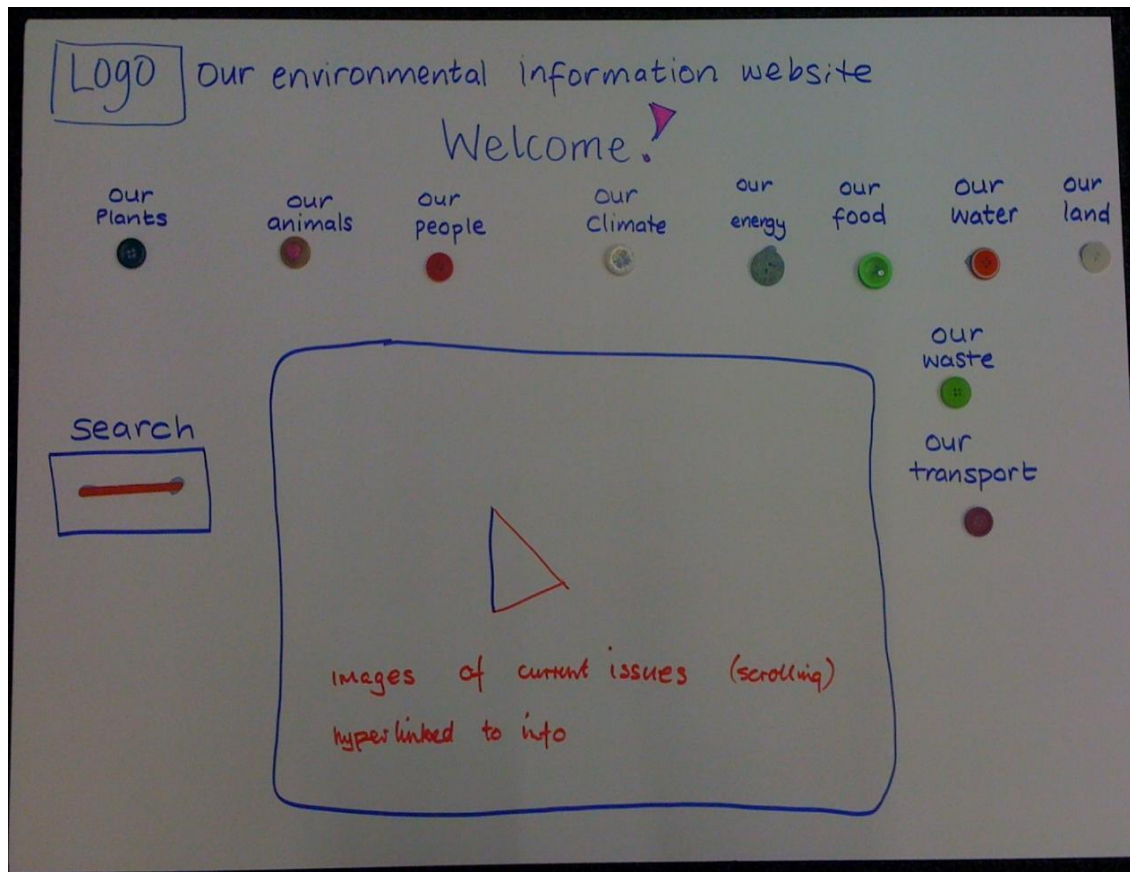 Logo
Our environmental information website
Welcome!
our
Plants
our
animals
our
people
our
Climate
our
energy
our
food
our
water
our
land
our
waste
our
transport
Search
images of current issues (scrolling)
hyperlinked to info